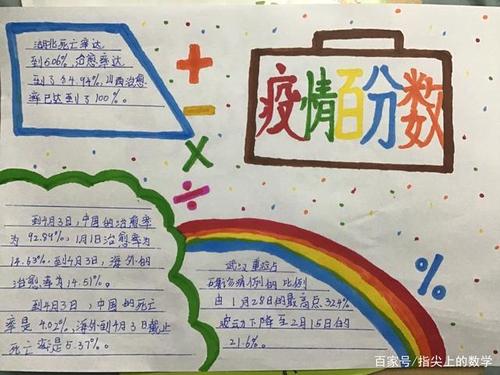 疫情百分数
湖北死亡率达
到5.06%,治愈率达
到了94.94%,山西治愈
率已达到了100%。
+
−
×
÷
到4月3日,中国的治愈率
为92.89%,1月1日治愈率为
14.63%。到4月3日,海外的
治愈率为14.51%。
到4月3日,中国的死亡
率是4.02%,海外到4月3日截止
死亡率是5.37%。
武汉重症占
确诊病例的比例
由1月28日的最高点32.4%
波动下降至2月15日的
21.6%。
%
百家号/指尖上的数学